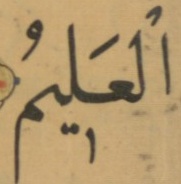 اَلْعَلِيمُ